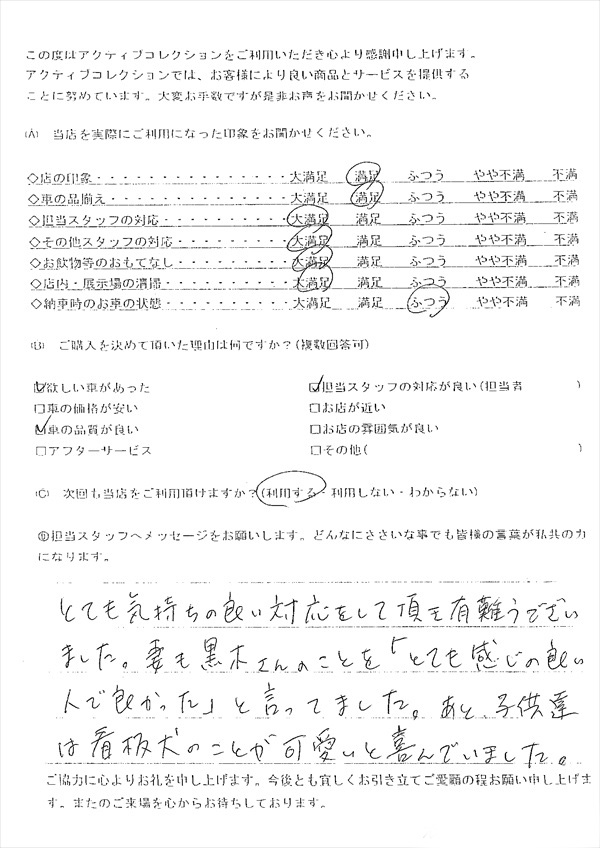 この度はアクティブコレクションをご利用いただき心より感謝申し上げます。
アクティブコレクションでは、お客様により良い商品とサービスを提供する
ことに努めています。大変お手数ですが是非お声をお聞かせください。
(A) 当店を実際にご利用になった印象をお聞かせください。
◇店の印象・・・・・・・・・・・・・・・大満足 満足 ふつう やや不満 不満
◇車の品揃え・・・・・・・・・・・・・・大満足 満足 ふつう やや不満 不満
◇担当スタッフの対応・・・・・・・・・・大満足 満足 ふつう やや不満 不満
◇その他スタッフの対応・・・・・・・・・大満足 満足 ふつう やや不満 不満
◇お飲物等のおもてなし・・・・・・・・・大満足 満足 ふつう やや不満 不満
◇店内・展示場の清掃・・・・・・・・・・大満足 満足 ふつう やや不満 不満
◇納車時のお車の状態・・・・・・・・・・大満足 満足 ふつう やや不満 不満
(B) ご購入を決めて頂いた理由は何ですか?(複数回答可)
☑欲しい車があった ☑担当スタッフの対応が良い(担当者 )
□車の価格が安い □お店が近い
☑車の品質が良い □お店の雰囲気が良い
□アフターサービス □その他( )
(C) 次回も当店をご利用頂けますか?(利用する・利用しない・わからない)
⑪担当スタッフへメッセージをお願いします。どんなにささいな事でも皆様の言葉が私共の力
になります。
とても気持ちの良い対応をして頂き有難うござい
ました。妻も黒木さんのことを「とても感じの良い
人で良かった」と言ってました。あと、子供達
は看板犬のことが可愛いと喜んでいました。
ご協力に心よりお礼を申し上げます。今後とも宜しくお引き立てご愛顧の程お願い申し上げま
す。またのご来場を心からお待ちしております。